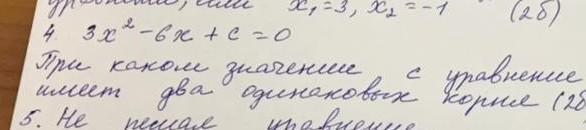 уравнение, если x₁=3, x₂=-1 (2б)
4. 3x²-6x+c=0
При каком значение с уравнение
имеет два одинаковых корня (2б
5. Не решая уравнение